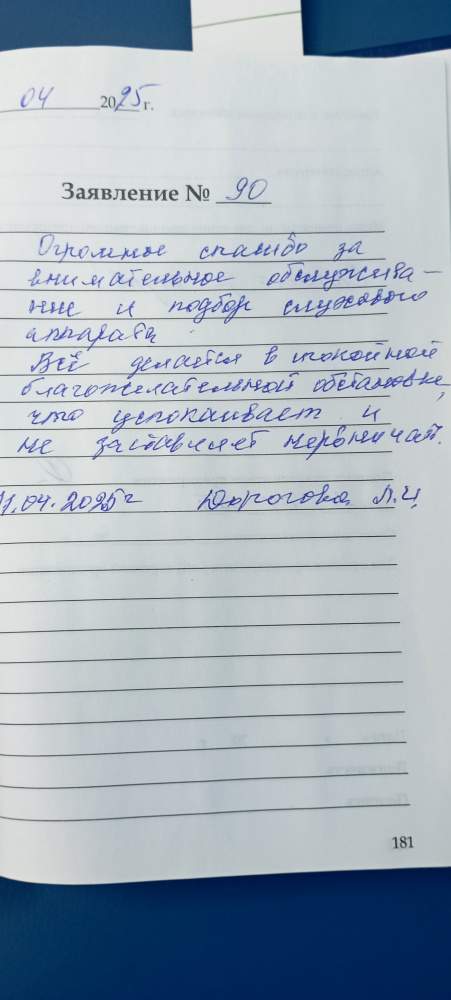 04 2025 г.
Заявление № 90
Огромное спасибо за
внимательное обслужива-
ние и подбор слухового
аппарата.
Всё делается в спокойной
благожелательной обстановке,
что успокаивает и
не заставляет нервничать.
1.04.2025г Л.И.
181